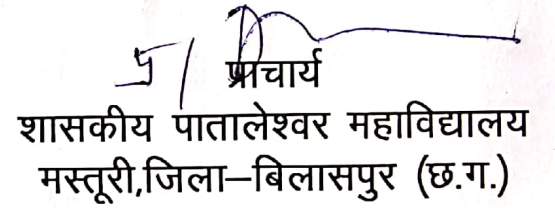 प्राचार्य
शासकीय पातालेश्वर महाविद्यालय
मस्तूरी,जिला–बिलासपुर (छ.ग.)